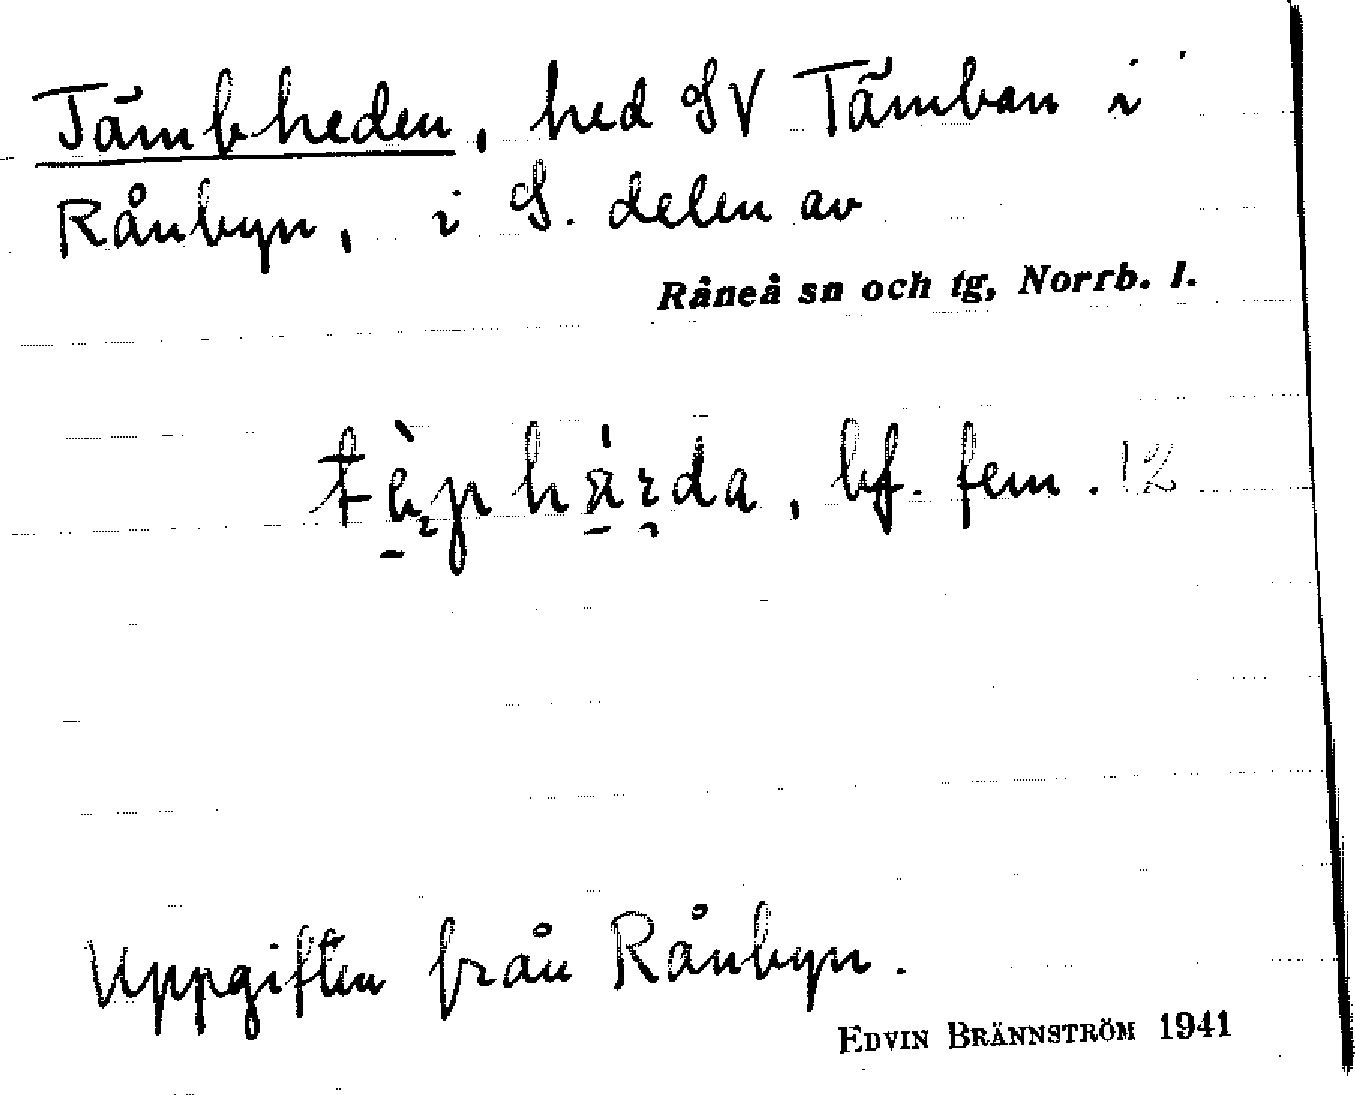 Tämbheden, hed SV Tämban i
Rånbyn, i S. delen av
Råneå sn och tg, Norrb. l.
bf. fem. 12
Uppgiften från Rånbyn.
EDVIN BRÄNNSTRÖM 1941